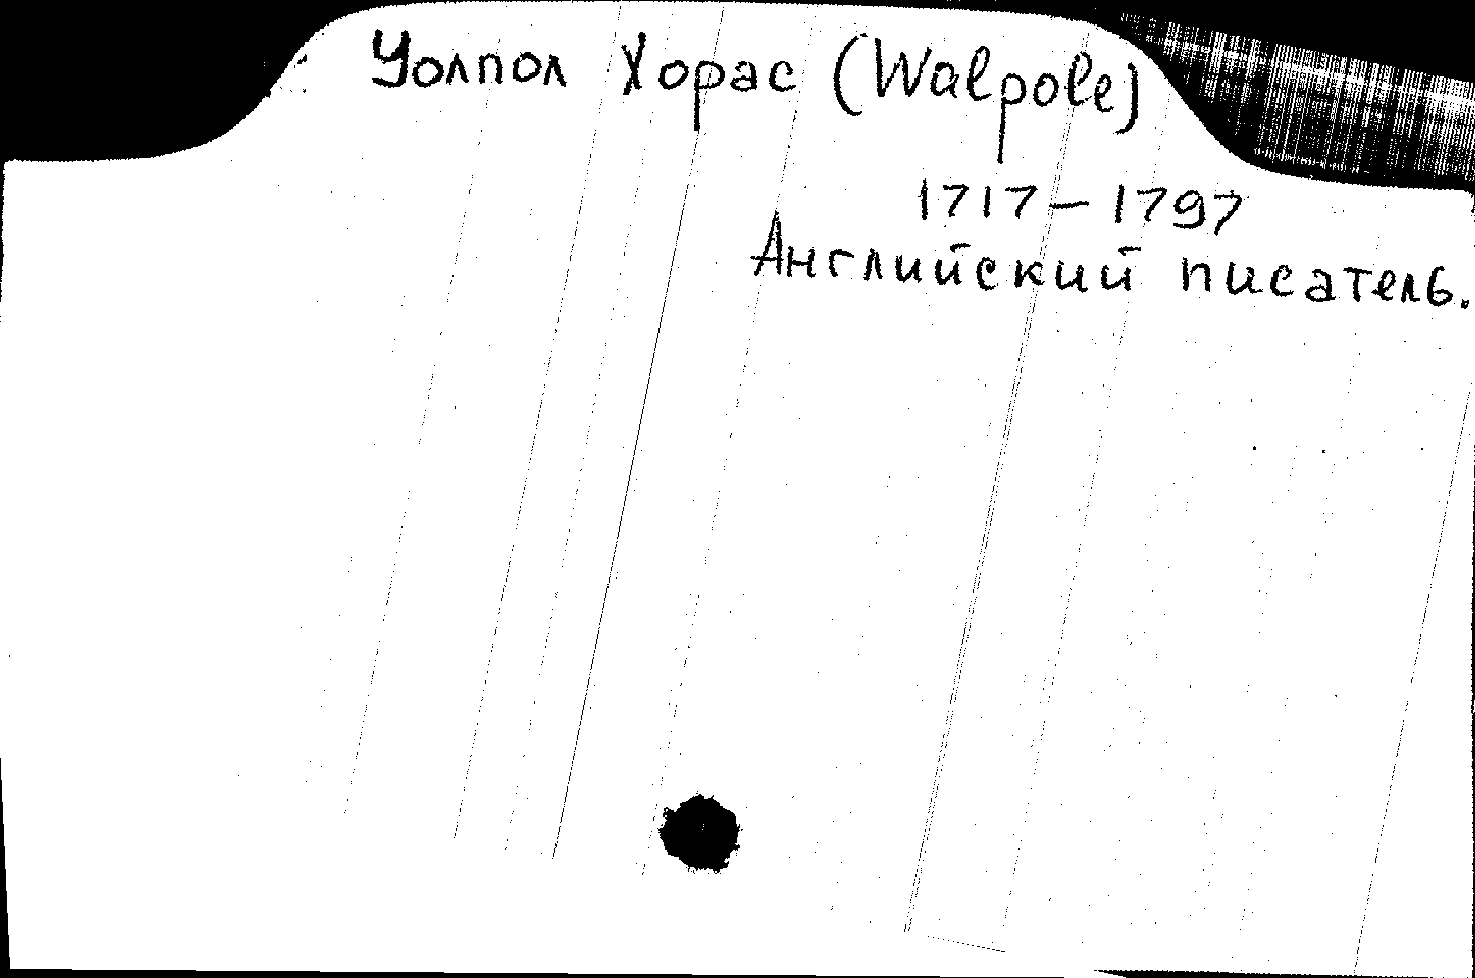 Уолпол Хорас (Walpole)
1717–1797
Английский писатель.